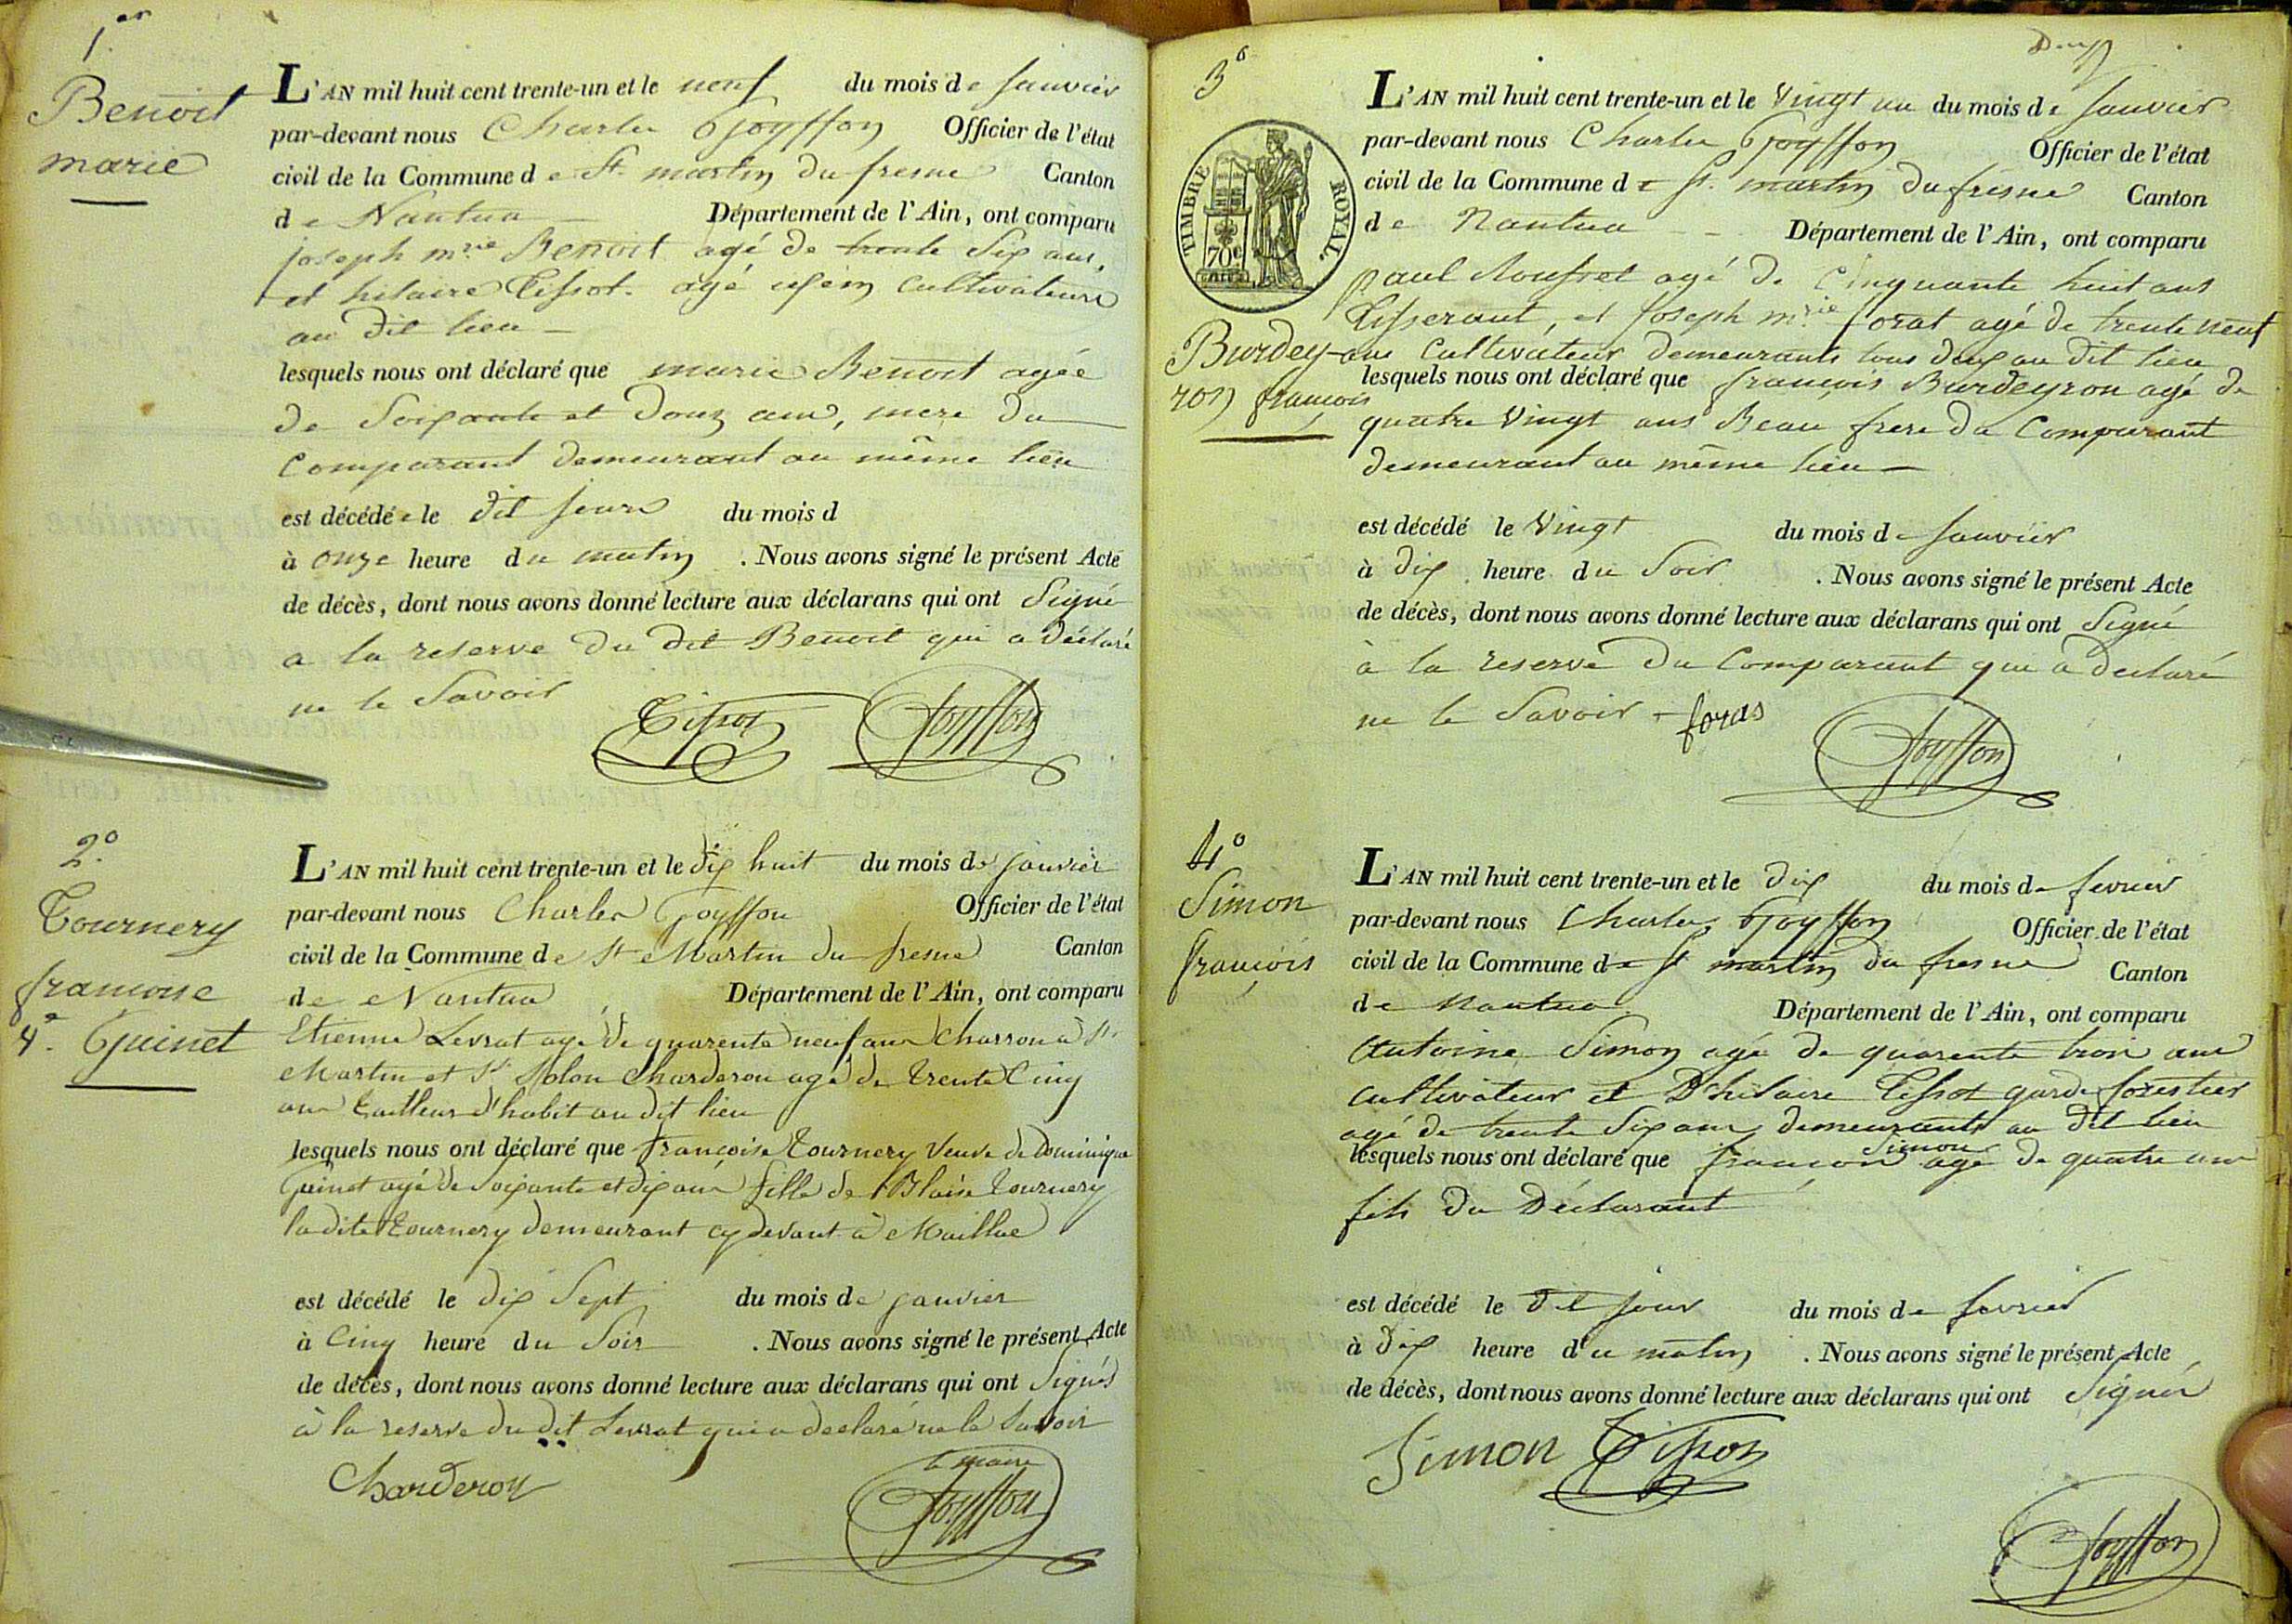 1er
Benoit
marie
L'AN mil huit cent trente-un et le neuf du mois de Janvier
par-devant nous Charles Goyffon Officier de l'état
civil de la Commune de St. martin du fresne Canton
de Nantua Département de l'Ain, ont comparu
joseph mrie Benoit agé de trente Six ans,
et hilaire Tissot. agé Cultivateurs
au dit lieu
lesquels nous ont déclaré que marie Benoit agée
de Soixante et Douz ans, mere du
Comparant demeurant au même lieu
est décédée le dit jour du mois d
à onze heure du matin . Nous avons signé le présent Acte
de décès, dont nous avons donné lecture aux déclarans qui ont Signé
a la reserve du dit Benoit qui a déclaré
ne le Savoir
Tissot Goyffon
2o.
Tournery
francoise
Ve. Guinet
L'AN mil huit cent trente-un et le dix huit du mois de janvier
par-devant nous Charles Goyffon Officier de l'état
civil de la Commune de St Martin du fresne Canton
de Nantua Département de l'Ain, ont comparu
Etienne Levrat agé de quarente neuf ans Charron a St.
Martin et Sr. Solon Charderon agé de trente Cinq
ans tailleur d'habit au dit lieu
lesquels nous ont déclaré que françoise tournery Veuve de Dominique
Guinet agé de Soixante et dix ans fille de Blaise tournery
la dite tournery demeurant cy devant à Maillac
est décédé le dix Sept du mois de janvier
à Cinq heure du Soir . Nous avons signé le présent Acte
de décès, dont nous avons donné lecture aux déclarans qui ont Signés
à la reserve du dit Levrat qui a declaré ne le Savoir
Charderon
le maire
Goyffon
Deux
3o
L'AN mil huit cent trente-un et le Vingt un du mois de Janvier
par-devant nous Charles Goyffon Officier de l'état
civil de la Commune de St. martin du fresne Canton
de Nantua Département de l'Ain, ont comparu
TIMBRE ROYAL.
70c
paul agé de Cinquante huit ans
tisserant, et Joseph mrie forat agé de trente neuf
Burdey-
ron françois
ans Cultivateur demeurants tous deux au dit lieu
lesquels nous ont déclaré que françois Burdeyron agé de
quatre Vingt ans Beau frere du Comparant
demeurant au même lieu
est décédé le Vingt du mois de Janvier
à dix heure du Soir . Nous avons signé le présent Acte
de décès, dont nous avons donné lecture aux déclarans qui ont Signé
à la reserve du Comparant qui a declaré
ne le Savoir - foras
Goyffon
4o
Simon
françois
L'AN mil huit cent trente-un et le dix du mois de fevrier
par-devant nous Charles Goyffon Officier de l'état
civil de la Commune de St martin du fresne Canton
de Nantua Département de l'Ain, ont comparu
Antoine Simon agé de quarente trois ans
cultivateur et hilaire Tissot garde forestier
agé de trente Six ans demeurants au dit lieu
Simon
lesquels nous ont déclaré que francois agé de quatre ans
fils du Déclarant
est décédé le dit jour du mois de fevrier
à dix heure du matin . Nous avons signé le présent Acte
de décès, dont nous avons donné lecture aux déclarans qui ont Signés
Simon Tissot
Goyffon